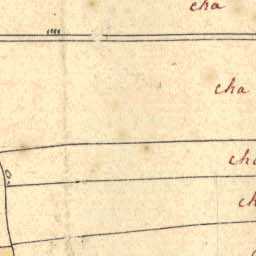 cha
cha
cha
cha